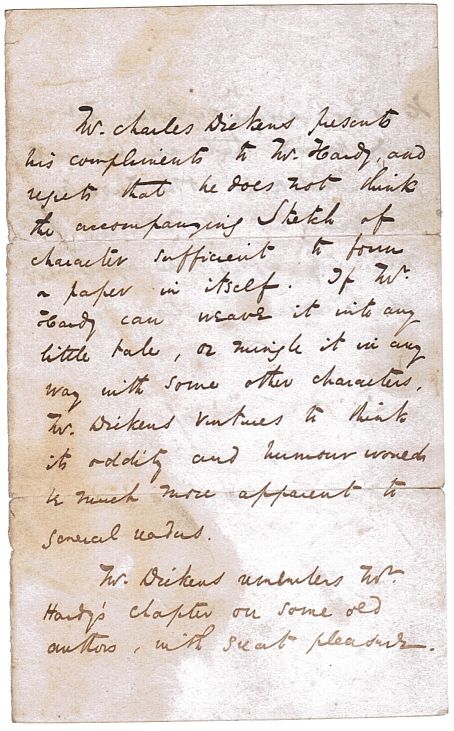 Mr. Charles Dickens presents
his compliments to Mr. Hardy, and
regrets that he does not think
the accompanying Sketch of
character sufficient to form
a paper in itself. If Mr.
Hardy can weave it into any
little tale, or mingle it in any
way with some other characters,
Mr. Dickens ventures to think
its oddity and humour would
be much more apparent to
general readers.
Mr. Dickens remembers Mr.
Hardy's chapter on some old
authors, with great pleasure.